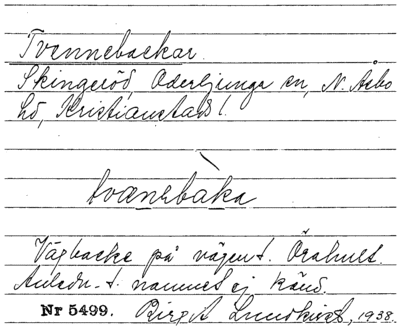 Tvennebackar.
Skingeröd, Oderljunga sn, N. Åsbo
hd, Kristianstads l.
tvænebaka
Vägbacke på vägen t. Örahult.
Anledn. t. namnet ej känd.
Nr 5499. Birgit Lundkvist, 1938.